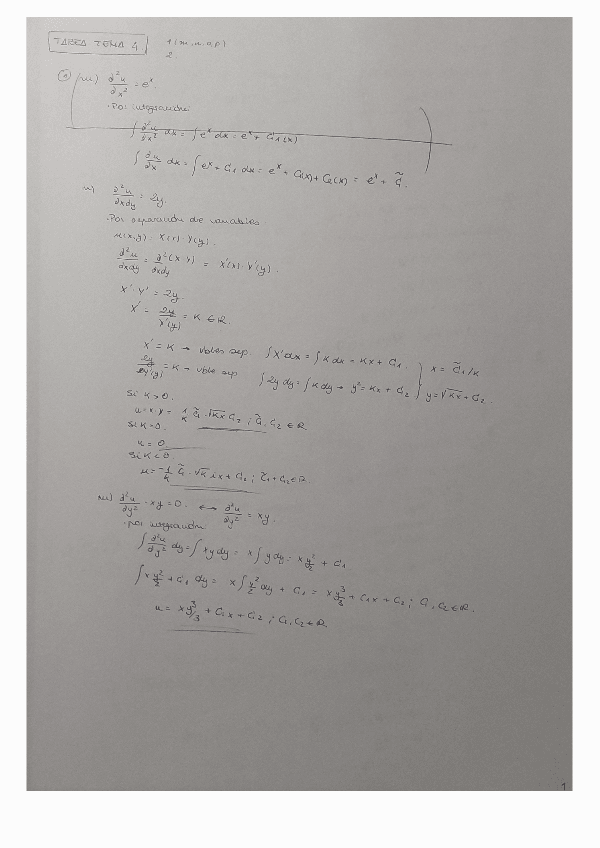 TAREA TEMA 4
1(m,n,o,p)
2.
① m) ∂²u/∂x² = eˣ.
· Por integración:
∫ ∂²u/∂x² dx = ∫ eˣ dx = eˣ + C₁(x)
∫ ∂u/∂x dx = ∫ eˣ + C₁ dx = eˣ + C₁(x) + C₂(x) = eˣ + C̃.
n) ∂²u/∂x∂y = 2y.
· Por separación de variables
u(x,y) = X(x) · Y(y).
∂²u/∂x∂y = ∂²(X·Y)/∂x∂y = X'(x) · Y'(y).
X' · Y' = 2y.
X' = 2y/Y'(y) = K ∈ ℝ.
X' = K → vbles sep. ∫ X' dx = ∫ K dx = Kx + C₁.
2y/Y'(y) = K → vble sep ∫ 2y dy = ∫ K dy → y² = Kx + C₂
x = C̃₁/K
y = √Kx + C₂.
Si K > 0.
u = x · y = 1/K C̃₁ · √Kx C₂ ; C̃₁, C₂ ∈ ℝ
Si K = 0.
u = 0.
Si K < 0.
u = -1/K C̃₁ · √K i x + C₂ ; C̃₁ + C₂ ∈ ℝ.
∂²u/∂y² - xy = 0. ↔ ∂²u/∂y² = xy.
· por integración
∫ ∂²u/∂y² dy = ∫ xy dy = x ∫ y dy = x y²/2 + C₁
∫ x y²/2 + C₁ dy = x ∫ y²/2 dy + C₁ = x y³/3 + C₁x + C₂ ; C₁, C₂ ∈ ℝ.
u = x y³/3 + C₁x + C₂ ; C₁, C₂ ∈ ℝ.
1